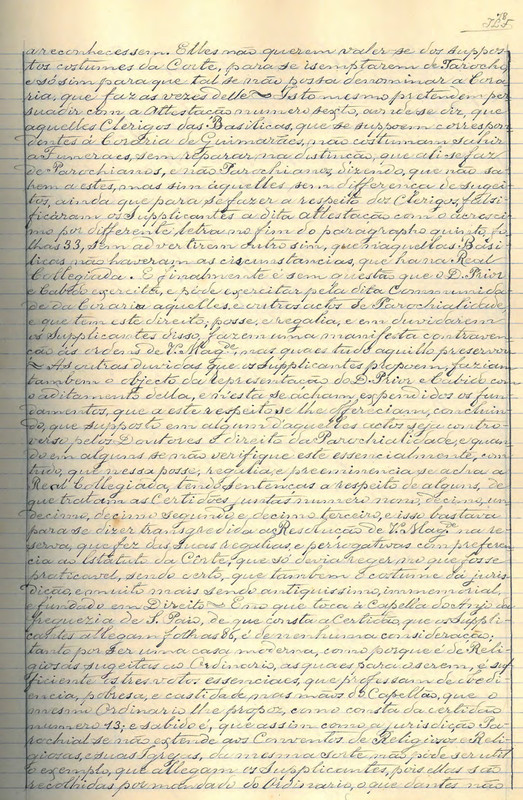 a reconhecessem. Elles não querem valer-se dos suppos-
tos costumes da Corte, para se isemptarem de Parocho,
e só sim para que tal se não possa denominar a Cora-
ria, que faz as vezes delle ~ Isto mesmo pretendem per
suadir com a Attestação numero sexto, aonde se diz, que
aquelles Clerigos das Basilicas, que se suppoem correspon-
dentes á Coraria de Guimarães, não costumam subir
a Funeraes, sem reparar, na distinção, que ali se faz
de Parochianos, e não Parochianos, dizendo, que não sa-
hem a estes, mas sim áquelles sem differença de sugei-
tos, ainda que para se fazer a respeito dos Clerigos, falsi-
ficaram os Supplicantes a dita attestação com o acresci-
mo por differente letra no fim do paragrapho quinto, fo-
lhas 33, sem advertiram outro sim, que naquellas Basi-
licas não haveram as circumstancias, que ha na Real
Collegiada. E finalmente é sem questão que o D. Prior
e Cabido exercita, e póde exercitar pela dita Communida-
de da Coraria aquelles, e outros actos de Parochialidade,
e que tem este direito, posse, e regalia, e em duvidarem
os Supplicantes disso, fazem uma manifesta contraven-
ção ás ordens de V. Magde, nas quaes tudo aquillo preservou
~ As outras duvidas que os Supplicantes propoem, faziam
tambem o objecto da representação do D. Prior e Cabido com
o aditamento della, e n'esta se acham, expendidos os fun-
damentos, que a este respeito se lhe offereciam, concluin-
do, que supposto em algum daquelles actos seja contro-
verso pelos Doutores o direito da Parochialidade, e quan-
do em alguns se não verifique este essencialmente, com
tudo, que nessa posse, regalia, e preeminencia se acha a
Real Collegiada, tendo sentenças a respeito de alguns, de
que tratam as Certidões, juntas numero nono, decimo, un-
decimo, decimo segundo e decimo terceiro, e isso bastava
para se dizer transgredida a Resolução de V. Magde na re-
serva, que fez das suas regalias, e perrogativas com preferen-
cia ao Estatuto da Corte, que só devia reger no que fosse
praticavel, sendo certo, que tambem o costume dá juris-
dicção, e muito mais sendo antiquissimo, immemorial,
e fundado em Direito ~ Em o que toca á Capella do Anjo da
freguezia de S. Paio, de que consta a Certidão, que os Suppli-
cantes allegam folhas 86, é de nenhuma consideração;
tanto por ser uma casa moderna, como porque é de Reli-
giosas sugeitas ao Ordinario, as quaes para o serem, é suf
ficiente os tres votos essenciaes, que professam de obedi-
encia, pobresa, e castidade, nas mãos do Capellão, que o
mesmo Ordinario lhe propoz, como consta da certidão
numero 13; e sabido é, que assim como a jurisdicção Pa-
rochial se não extende aos Conventos de Religiosos e Reli-
giosas, e suas Igrejas, da mesma sorte não póde ser util
o exemplo, que allegam os Supplicantes, pois ellas são
recolhidas por mandado do Ordinario, o que dantes não